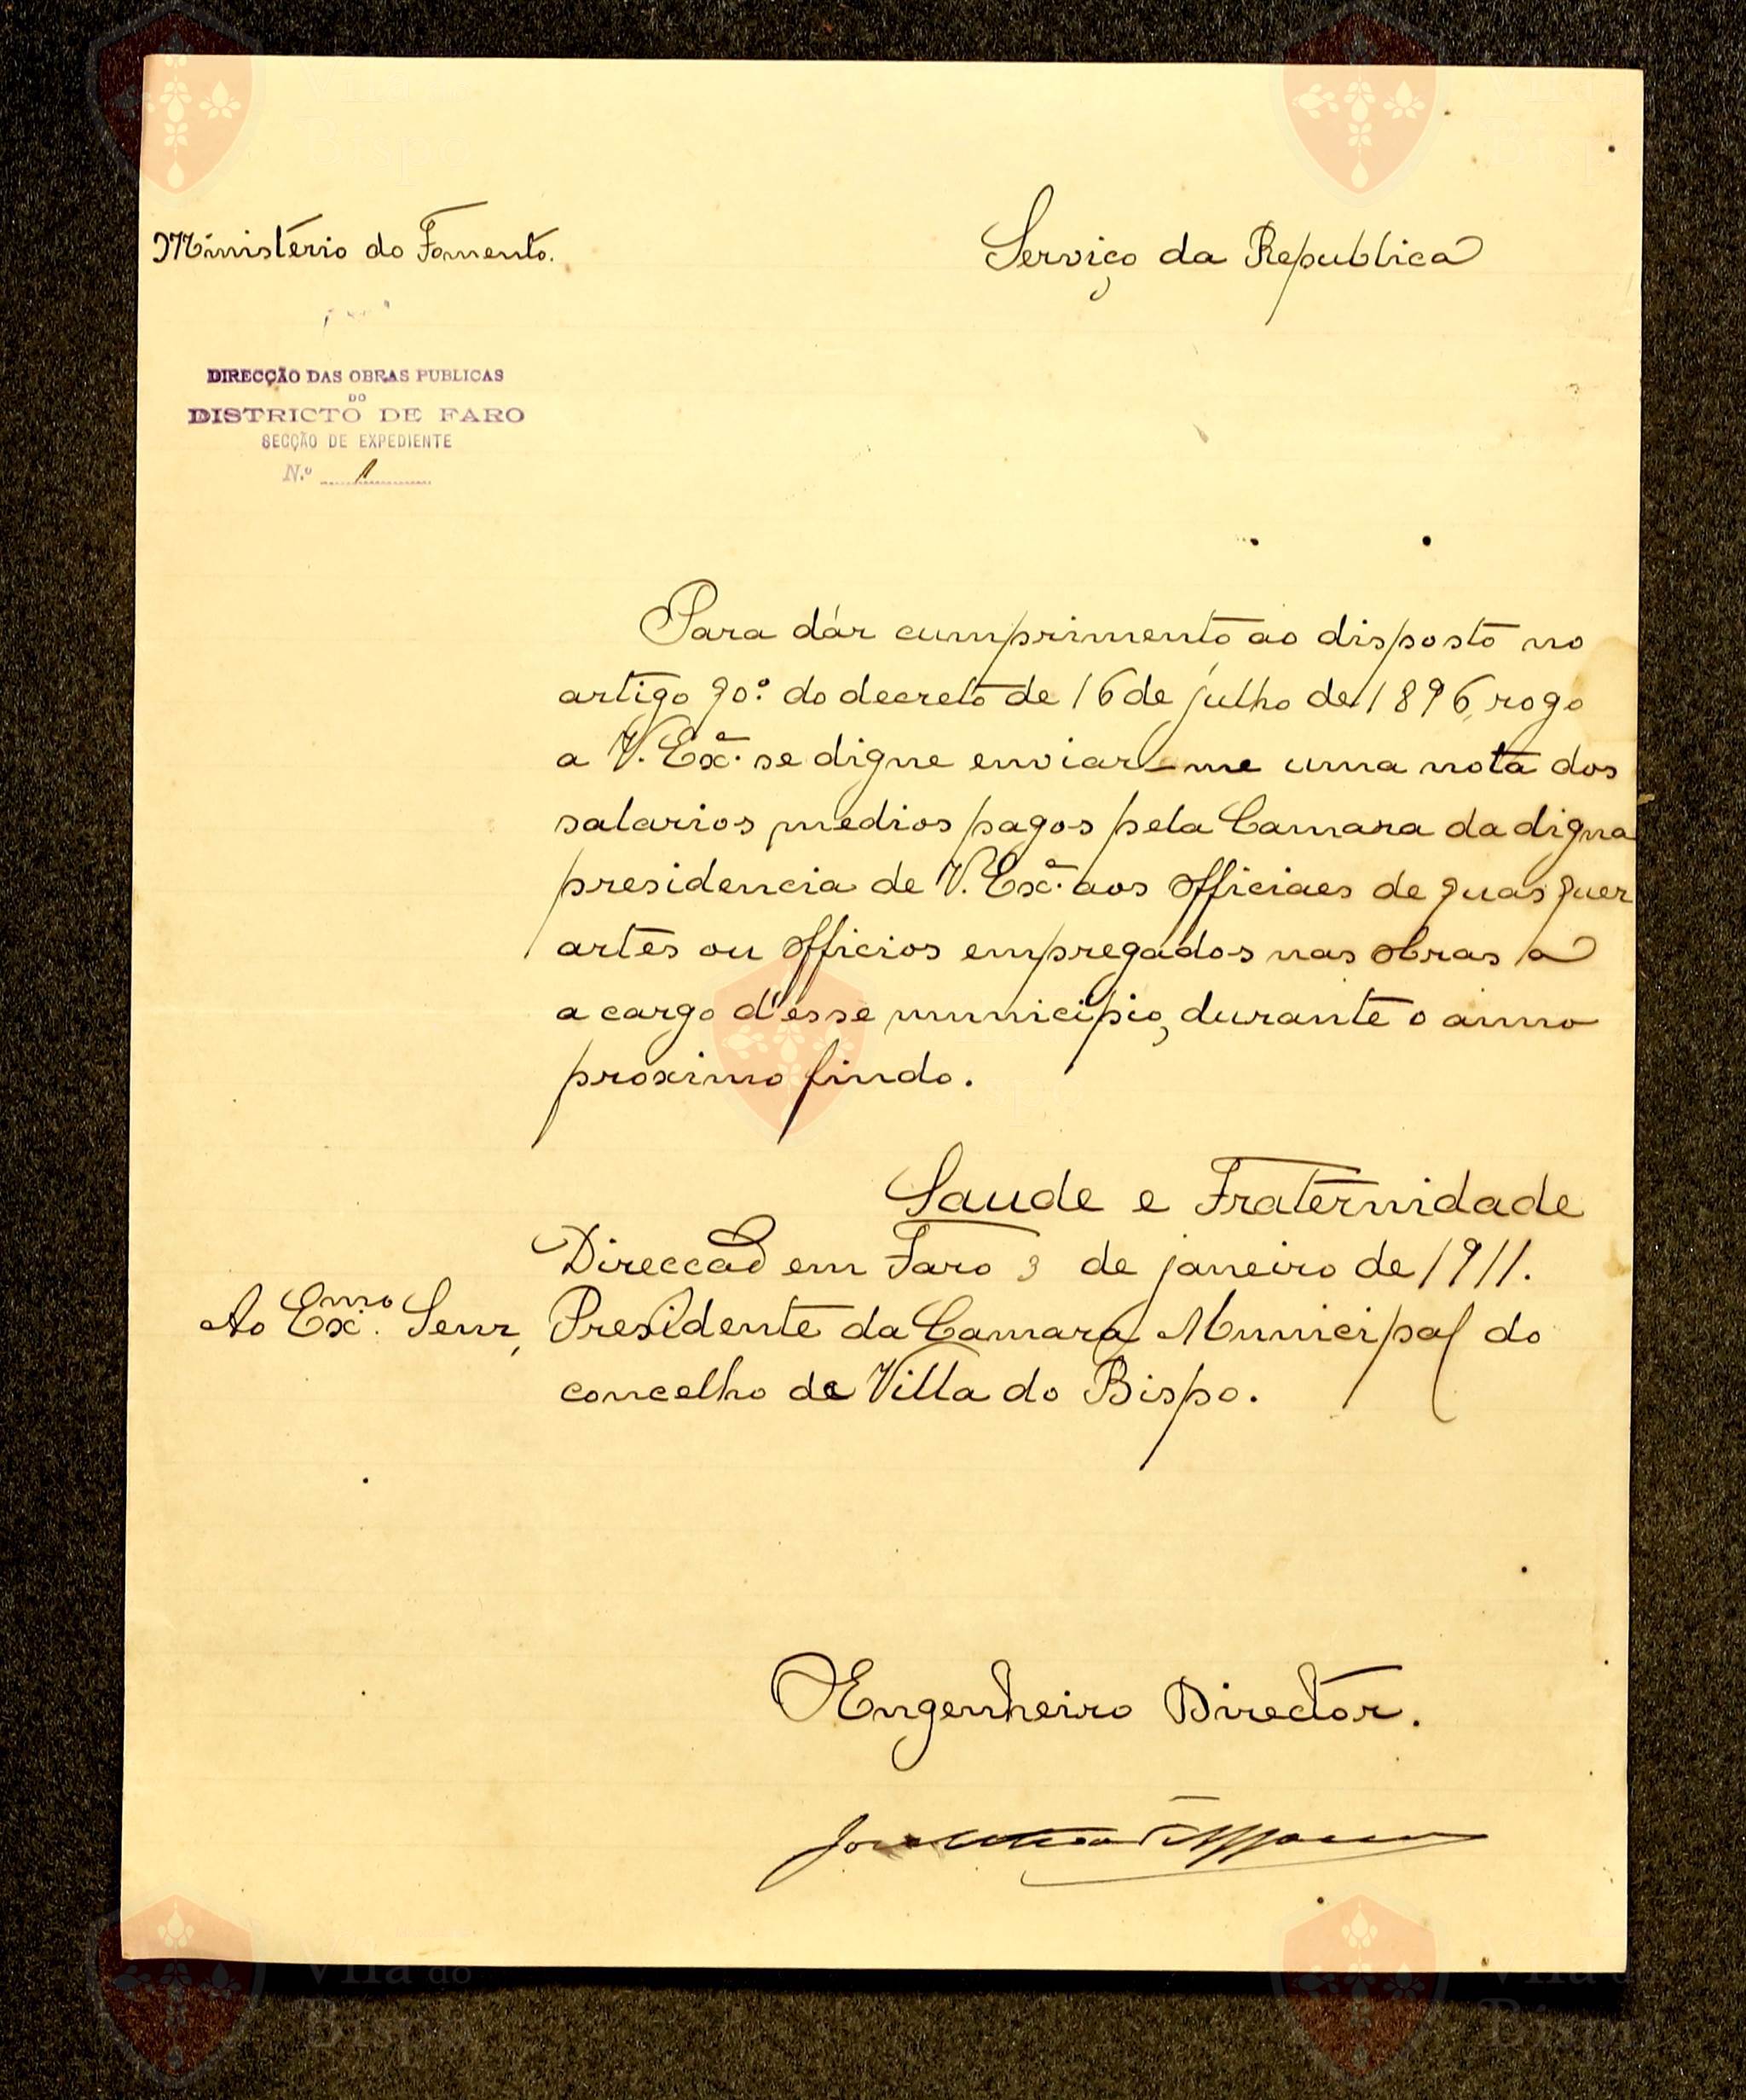 Ministério do Fomento.
Serviço da Republica
DIRECÇÃO DAS OBRAS PUBLICAS
DO
DISTRICTO DE FARO
SECÇÃO DE EXPEDIENTE
N.º 1
Para dár cumprimento ao disposto no
artigo 90.º do decreto de 16 de julho de 1896, rogo
a V. Exª. se digne enviar-me uma nota dos
salarios medios pagos pela Camara da digna
presidencia de V. Exª. aos officiaes de quasquer
artes ou officios empregados nas obras a
a cargo d'esse municipio, durante o anno
proximo findo.
Saude e Fraternidade
Direcção em Faro 3 de janeiro de 1911.
Ao Exmo. Senr, Presidente da Camara Municipal do
concelho de Villa do Bispo.
O Engenheiro Director.
Vila do
Bispo